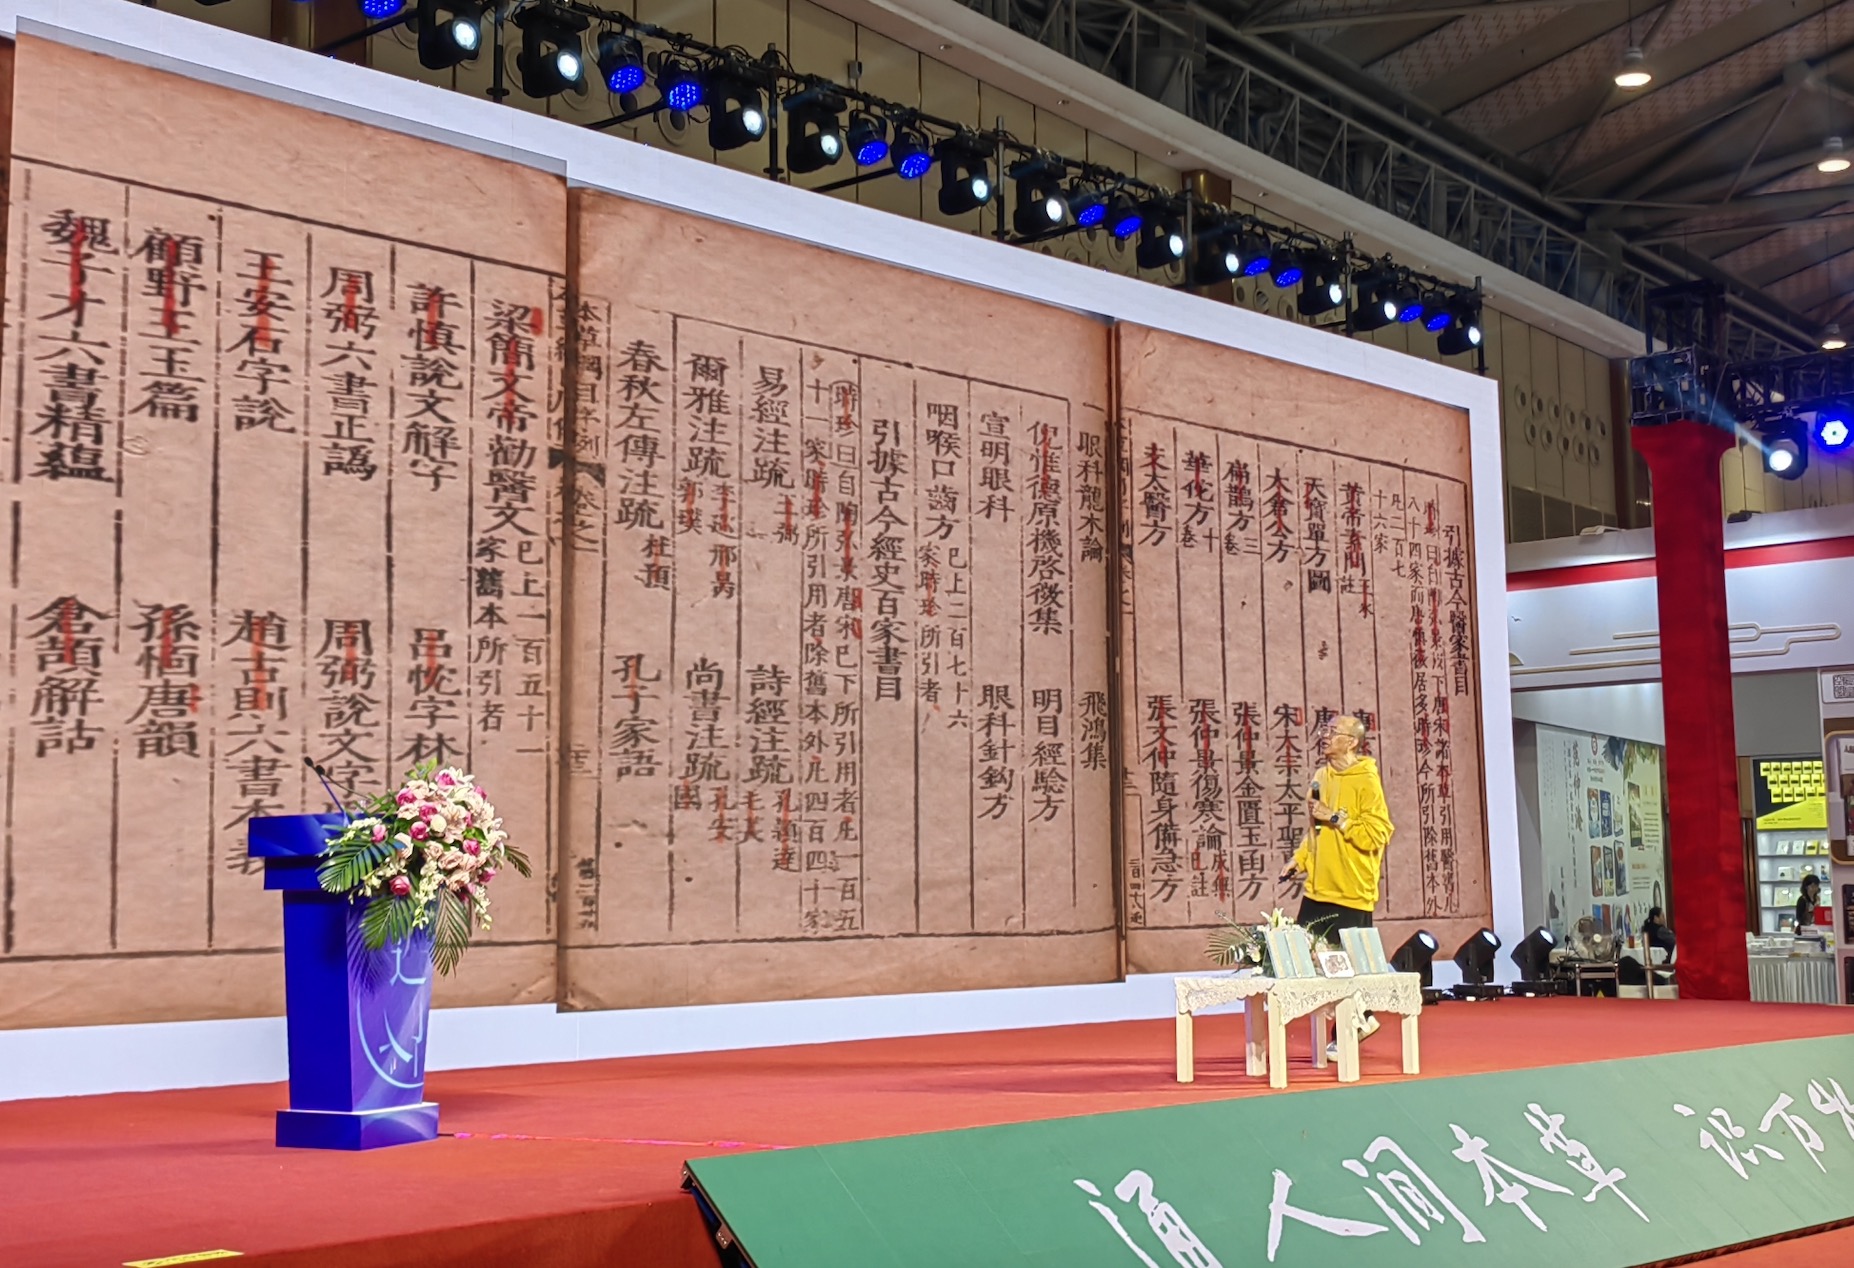 引據古今醫家書目
八十四家而唐宋
居多時珍今所引除舊本外
凡二百七
十六家
天寶單方圖
大倉公方
宋太宗太平聖
方
扁鵲方三卷
張仲景金匱玉函方
華佗方十卷
張仲景傷寒論成無已註
支太醫方
張文仲隨身備急方
眼科龍木論
飛鴻集
倪惟德原機啓微集
明目經驗方
宣明眼科
眼科針鈎方
咽喉口齒方已上二百七十六家時珍所引者
引據古今經史百家書目
時珍曰自陶弘景唐宋已下所引用者凡一百五
十一家時珍所引用者除舊本外凡四百四十家
易經注疏王弼
詩經注疏孔穎達毛萇
爾雅注疏李巡邢昺郭璞
尚書注疏孔安國
春秋左傳注疏杜預
孔子家語
本草綱目序例
梁簡文帝勸醫文已上一百五十一家舊本所引者
許慎說文解字
呂忱字林
周弼六書正譌
周弼說文字
王安石字說
趙古則六書本義
顧野王玉篇
孫愐唐韻
魏子才六書精蘊
倉頡解詁
通人间本草 识万物